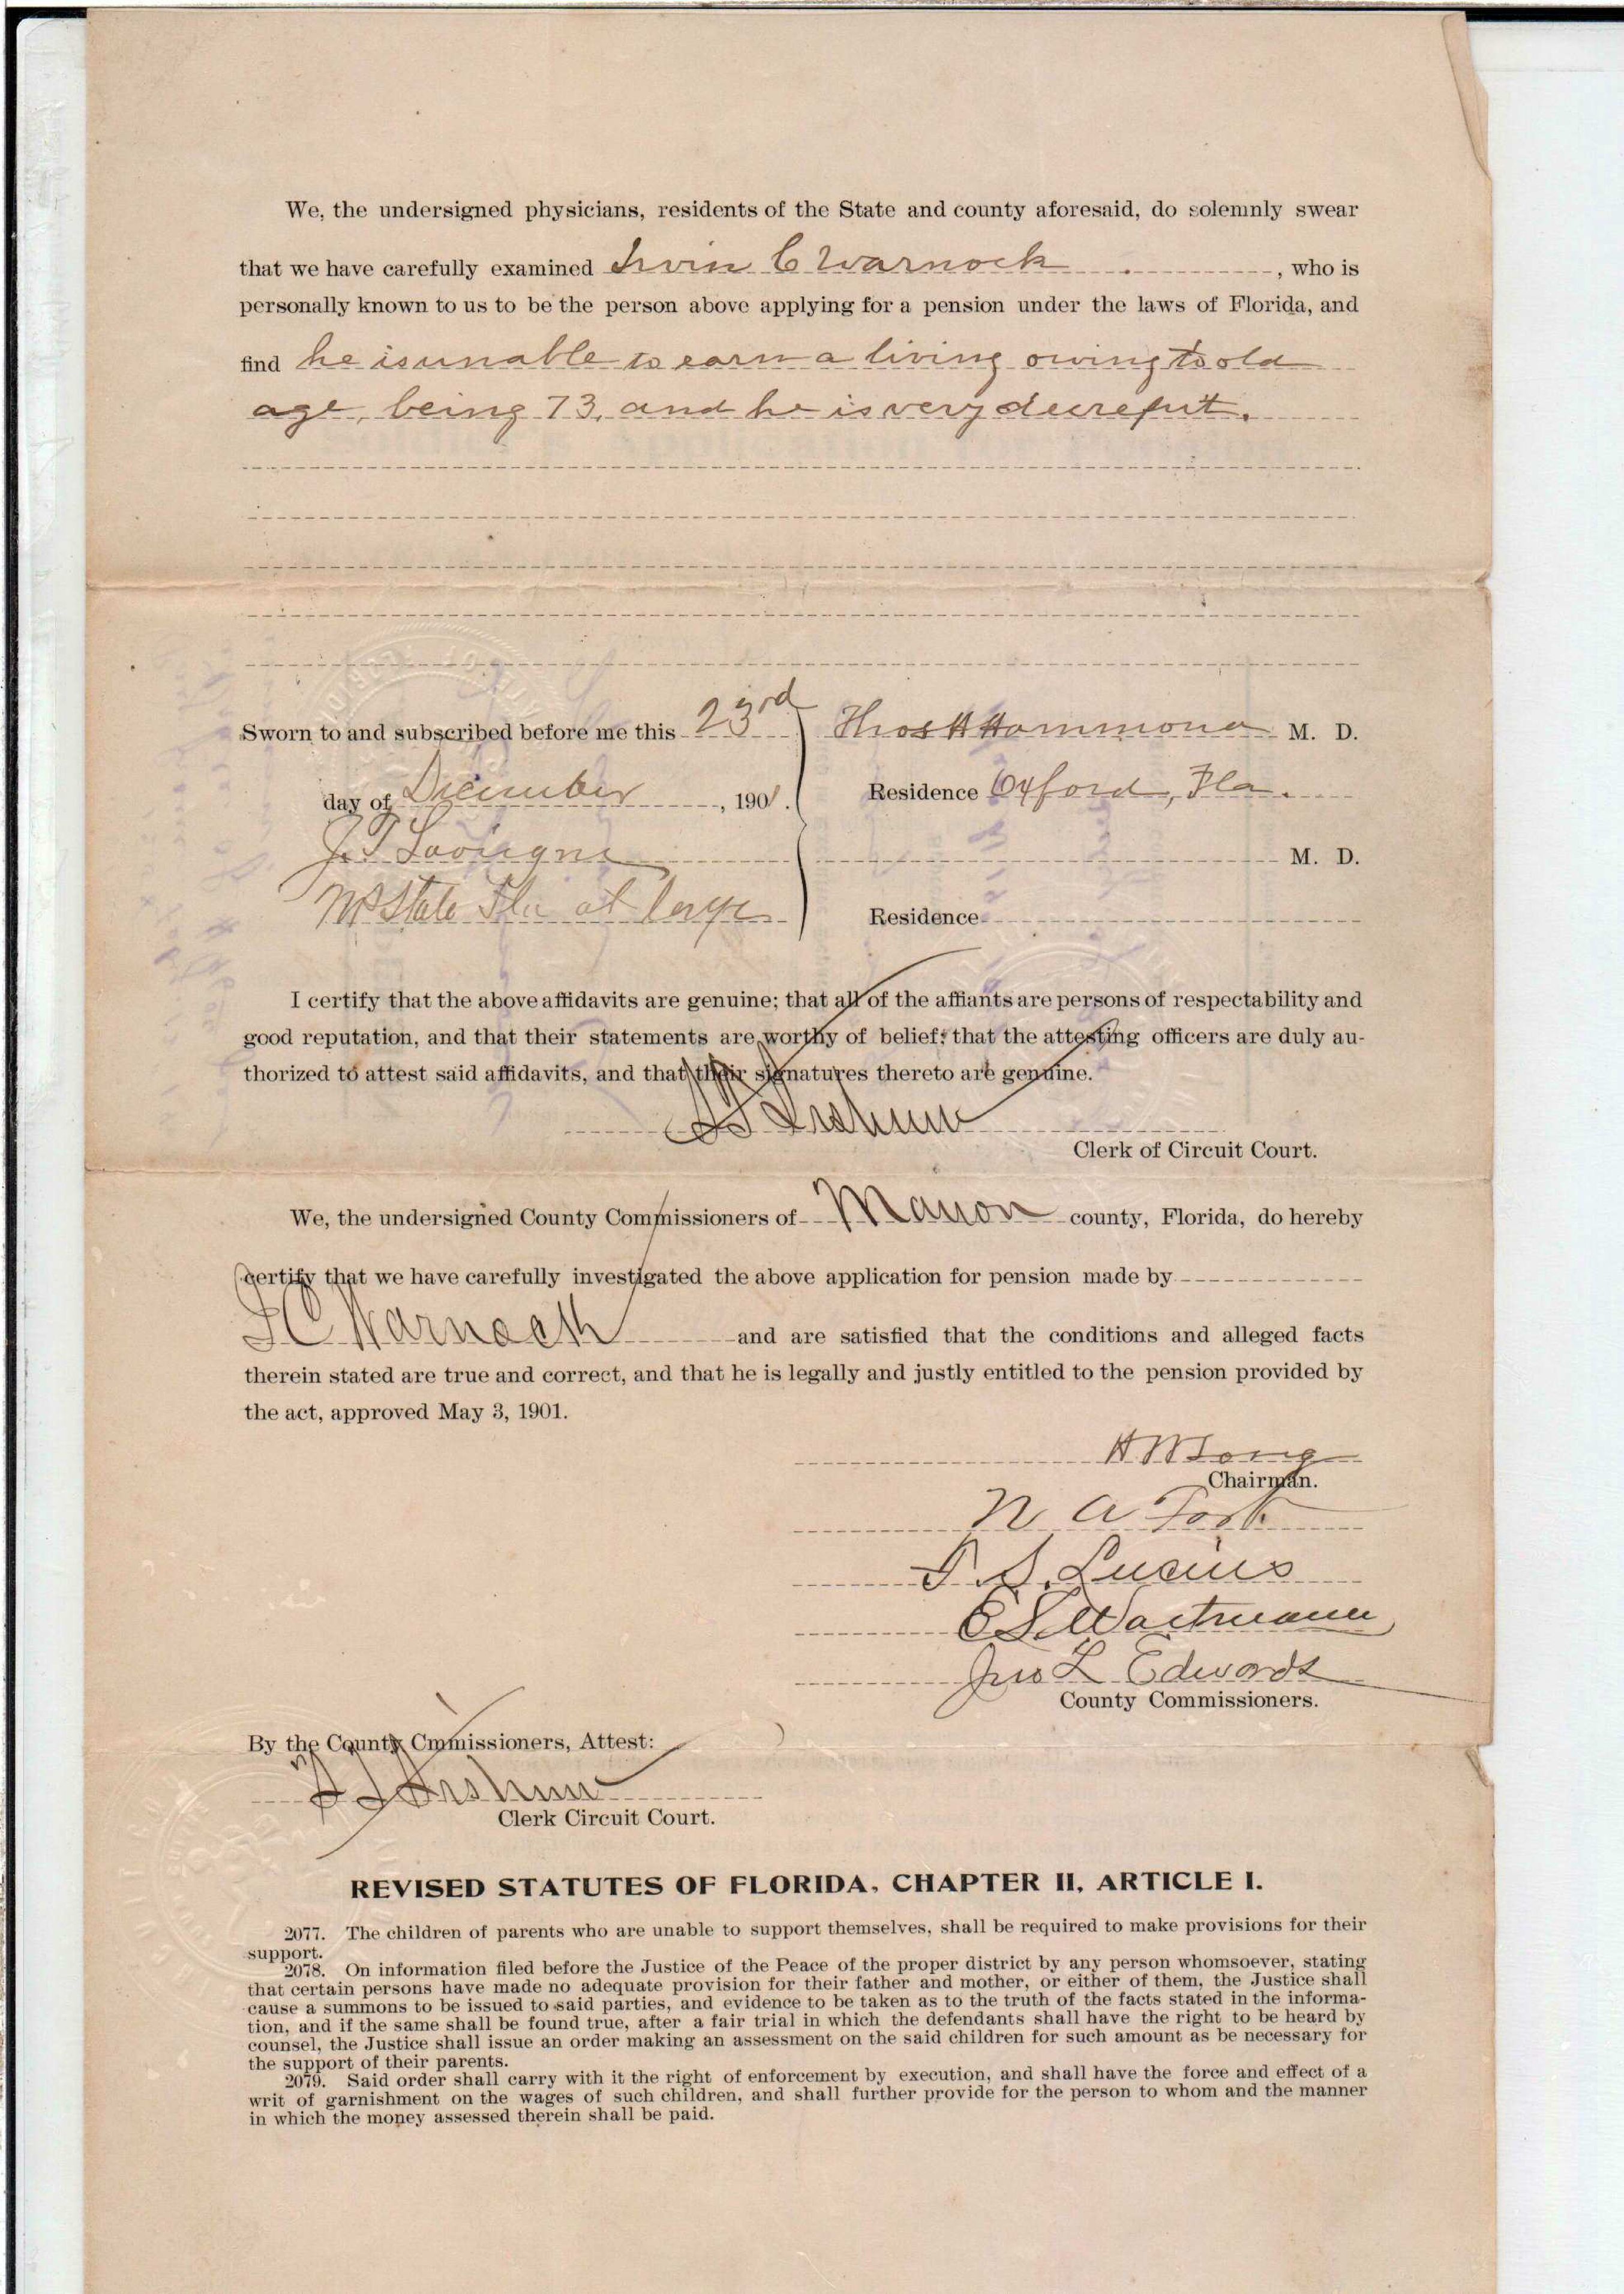 We, the undersigned physicians, residents of the State and county aforesaid, do solemnly swear
that we have carefully examined Irvin C Warnock, who is
personally known to us to be the person above applying for a pension under the laws of Florida, and
find he is unable to earn a living owing to old
age, being 73, and he is very decreput.
Sworn to and subscribed before me this 23rd
day of December, 1901.
Thos H Hammond M. D.
Residence Oxford, Fla.
J. T. Lavigne
M. D.
NP State Fla at large
Residence
I certify that the above affidavits are genuine; that all of the affiants are persons of respectability and
good reputation, and that their statements are worthy of belief; that the attesting officers are duly au-
thorized to attest said affidavits, and that their signatures thereto are genuine.
Clerk of Circuit Court.
We, the undersigned County Commissioners of Marion county, Florida, do hereby
certify that we have carefully investigated the above application for pension made by
I C Warnock and are satisfied that the conditions and alleged facts
therein stated are true and correct, and that he is legally and justly entitled to the pension provided by
the act, approved May 3, 1901.
H W Long
Chairman.
N A Fort
S. Lucius
E L Wartmann
Jno L Edwards
County Commissioners.
By the County Cmmissioners, Attest:
Clerk Circuit Court.
REVISED STATUTES OF FLORIDA, CHAPTER II, ARTICLE I.
2077. The children of parents who are unable to support themselves, shall be required to make provisions for their
support.
2078. On information filed before the Justice of the Peace of the proper district by any person whomsoever, stating
that certain persons have made no adequate provision for their father and mother, or either of them, the Justice shall
cause a summons to be issued to said parties, and evidence to be taken as to the truth of the facts stated in the informa-
tion, and if the same shall be found true, after a fair trial in which the defendants shall have the right to be heard by
counsel, the Justice shall issue an order making an assessment on the said children for such amount as be necessary for
the support of their parents.
2079. Said order shall carry with it the right of enforcement by execution, and shall have the force and effect of a
writ of garnishment on the wages of such children, and shall further provide for the person to whom and the manner
in which the money assessed therein shall be paid.